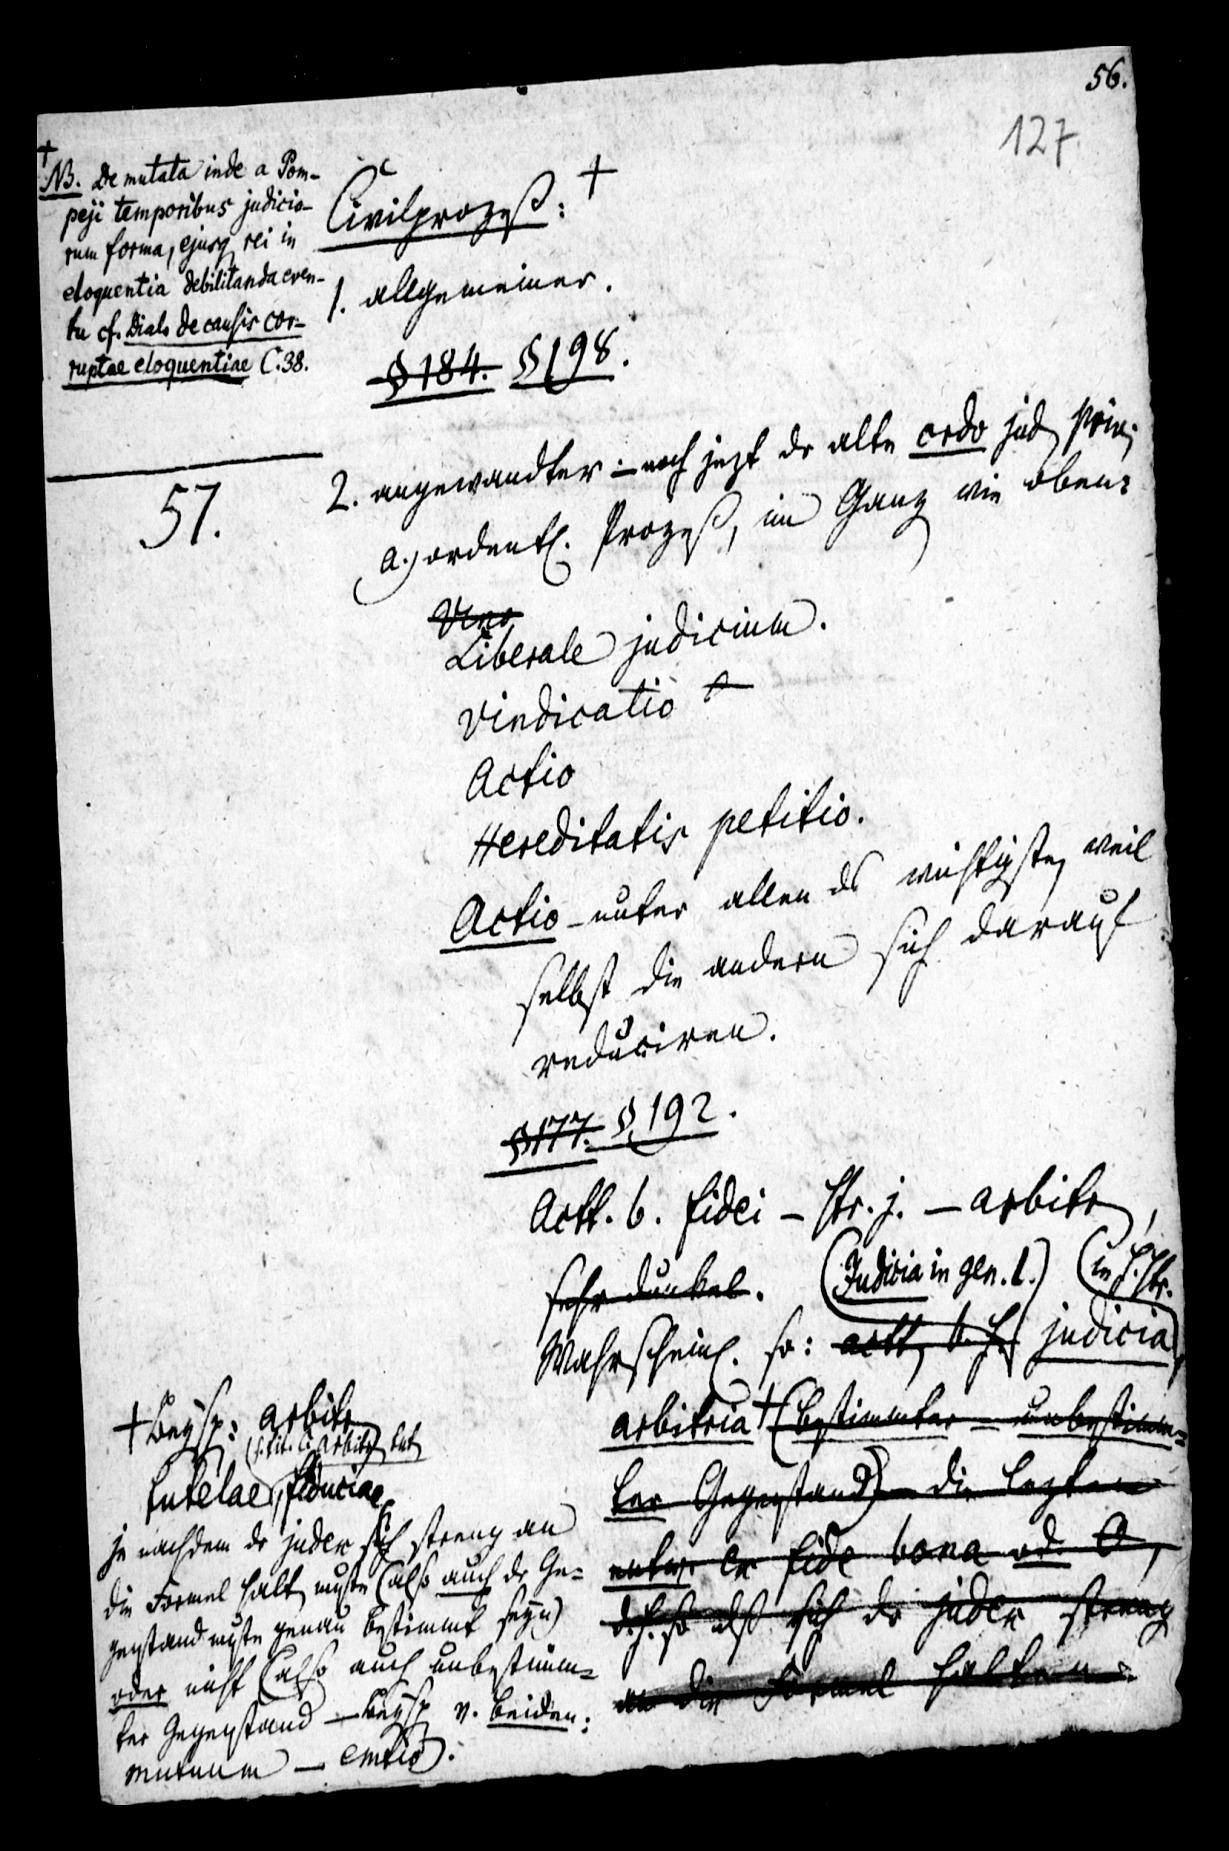 56.
127
† NB. De mutata inde a Pom-
peji temporibus judicio-
rum forma, ejusq rei in
eloquentia debilitanda even-
tu cf. Dial. de causis cor-
ruptae eloquentiae C. 38.
57.
Civilprozeß: †
1. allgemeiner.
§ 184. § 198.
2. angewandter: – noch jezt der alte ordo jud. priv.
a.) ordentl. Prozeß, im Ganz wie oben:
Liberale judicium.
Vindicatio
Actio
Hereditatis petitio.
Actio – unter allen das wichtigste, weil
selbst die andern sich darauf
reduciren.
§ 177. § 192.
Actt. b. fidei – str. j. – arbitr,
sehr dunkel. (Judicia in gen. l.) (in s. str.
Wahrscheinl. so: actt, b. f. judicia,
arbitria † (bestimmter – unbestimm=
ter Gegenstand) – die lezten
entw. ex fide bona od. 0,
d.h. so daß sich der judex streng
an die Formel halten
† Beysp: arbitr
tutelae, fiduciae
je nachdem der judex sich streng an
die Formel halt. mußte (also auch der Ge=
genstand mußte genau bestimmt seyn)
oder nicht (also auch unbestimm=
ter Gegenstand – Beysp v. beiden:
mutuum – emtio).